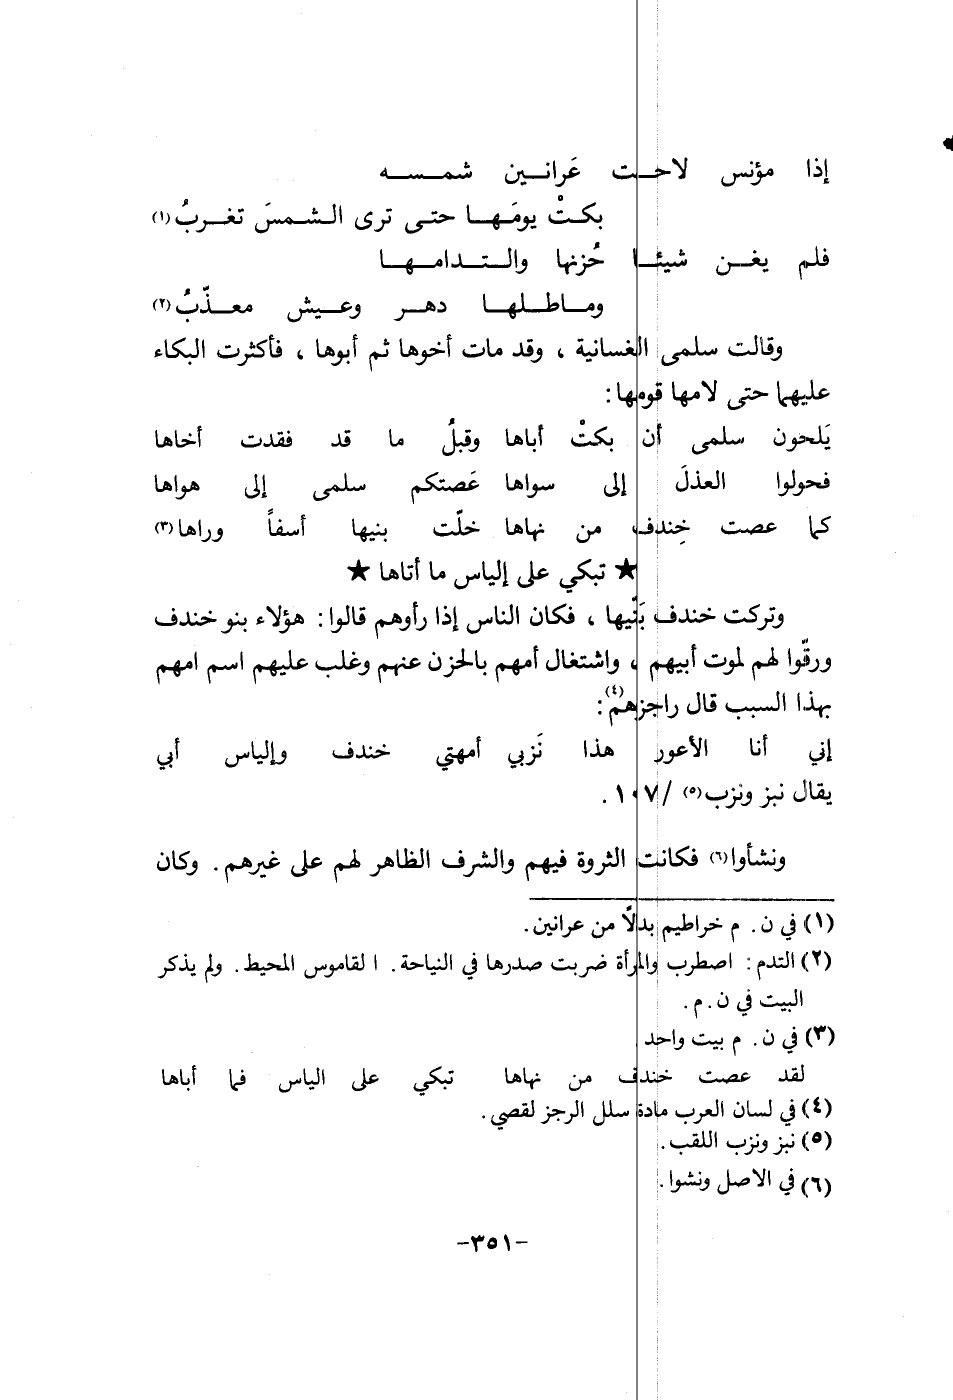 إذا مؤنس لاحت عَرانين شمسه
بكتْ يومَها حتى ترى الشمسَ تغربُ (١)
فلم يغن شيئا حُزنها والتدامها
وماطلها دهر وعيش معذّبُ (٢)
وقالت سلمى الغسانية ، وقد مات أخوها ثم أبوها ، فأكثرت البكاء
عليهما حتى لامها قومها :
يَلحون سلمى أن بكتْ أباها وقبلُ ما قد فقدت أخاها
فحولوا العذلَ إلى سواها عَصتكم سلمى إلى هواها
كما عصت خِندف من نهاها خلّت بنيها أسفاً وراها (٣)
★ تبكي على إلياس ما أتاها ★
وتركت خندف بَنّيها ، فكان الناس إذا رأوهم قالوا : هؤلاء بنو خندف
ورقّوا لهم لموت أبيهم ، واشتغال أمهم بالحزن عنهم وغلب عليهم اسم امهم
بهذا السبب قال راجزهم (٤) :
إني أنا الأعور هذا نَزبي أمهتي خندف وإلياس أبي
يقال نبز ونزب (٥) / ١٠٧ .
ونشأوا (٦) فكانت الثروة فيهم والشرف الظاهر لهم على غيرهم . وكان
(١) في ن . م خراطيم بدلاً من عرانين .
(٢) التدم : اصطرب والمرأة ضربت صدرها في النياحة . ا لقاموس المحيط . ولم يذكر
البيت في ن . م .
(٣) في ن . م بيت واحد
لقد عصت خندف من نهاها تبكي على الياس فما أباها
(٤) في لسان العرب مادة سلل الرجز لقصي .
(٥) نبز ونزب اللقب .
(٦) في الاصل ونشوا .
-٣٥١-